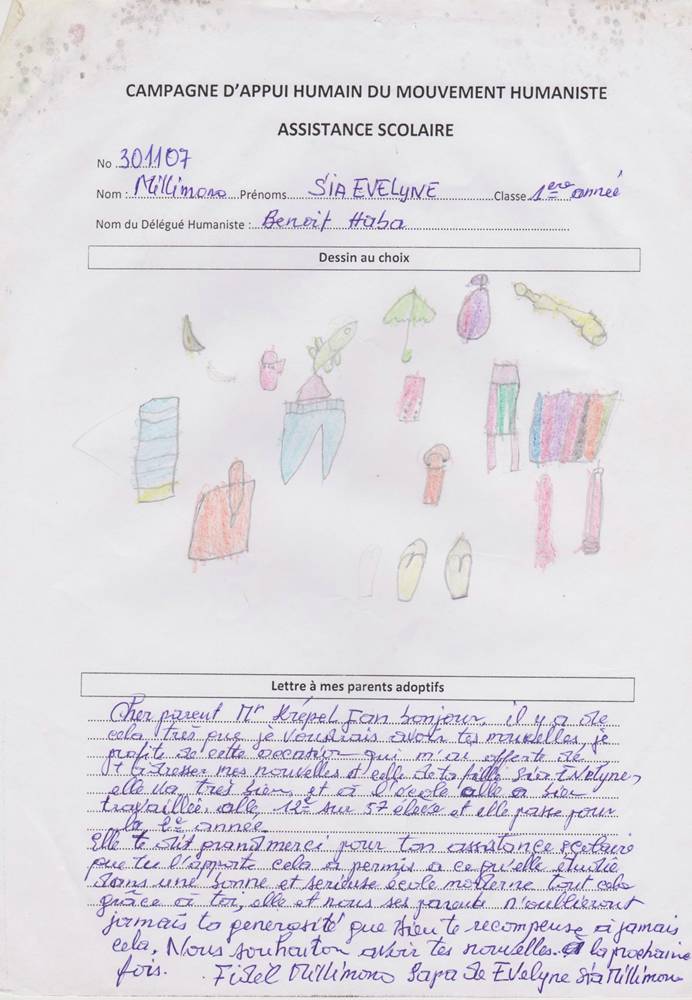 CAMPAGNE D'APPUI HUMAIN DU MOUVEMENT HUMANISTE
ASSISTANCE SCOLAIRE
No 301107
Nom : Millimono Prénoms SIA EVELYNE Classe 1ere année
Nom du Délégué Humaniste : Benoit Haba
Dessin au choix
Lettre à mes parents adoptifs
Cher parent Mr Krépel Jan bonjour, il y a de
cela très que je voudrais avoir tes nouvelles, je
profite de cette occasion qui m'ai offerte de
t'adresser mes nouvelles et celle de ta fille Sia Evelyne,
elle va très bien et à l'école elle a bien
travaillée elle, 12e sur 57 élève et elle passe pour
la 2e année.
Elle te dit grand merci pour ton assistance scolaire
que tu l'apporte cela a permis a ce qu'elle étudie
dans une bonne et serieuse école moderne tout cela
grâce à toi, elle et nous ses parents n'oublieront
jamais ta generosité que Dieu te recompense à jamais
cela. Nous souhaiton avoir tes nouvelles. à la prochaine
fois. Fidel Millimono Papa de Evelyne Sia Millimono